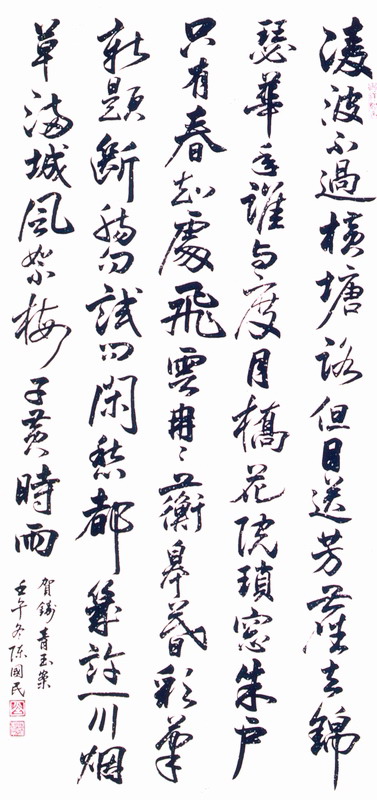 凌波不過横塘路但目送芳塵去錦
瑟華年誰与度月橋花院瑣窓朱户
只有春知處飛雲冉〻蘅皋暮彩筆
新題斷腸句試問閑愁都幾許一川烟
草滿城風絮梅子黄時雨
賀鑄青玉案
壬午冬陳國民